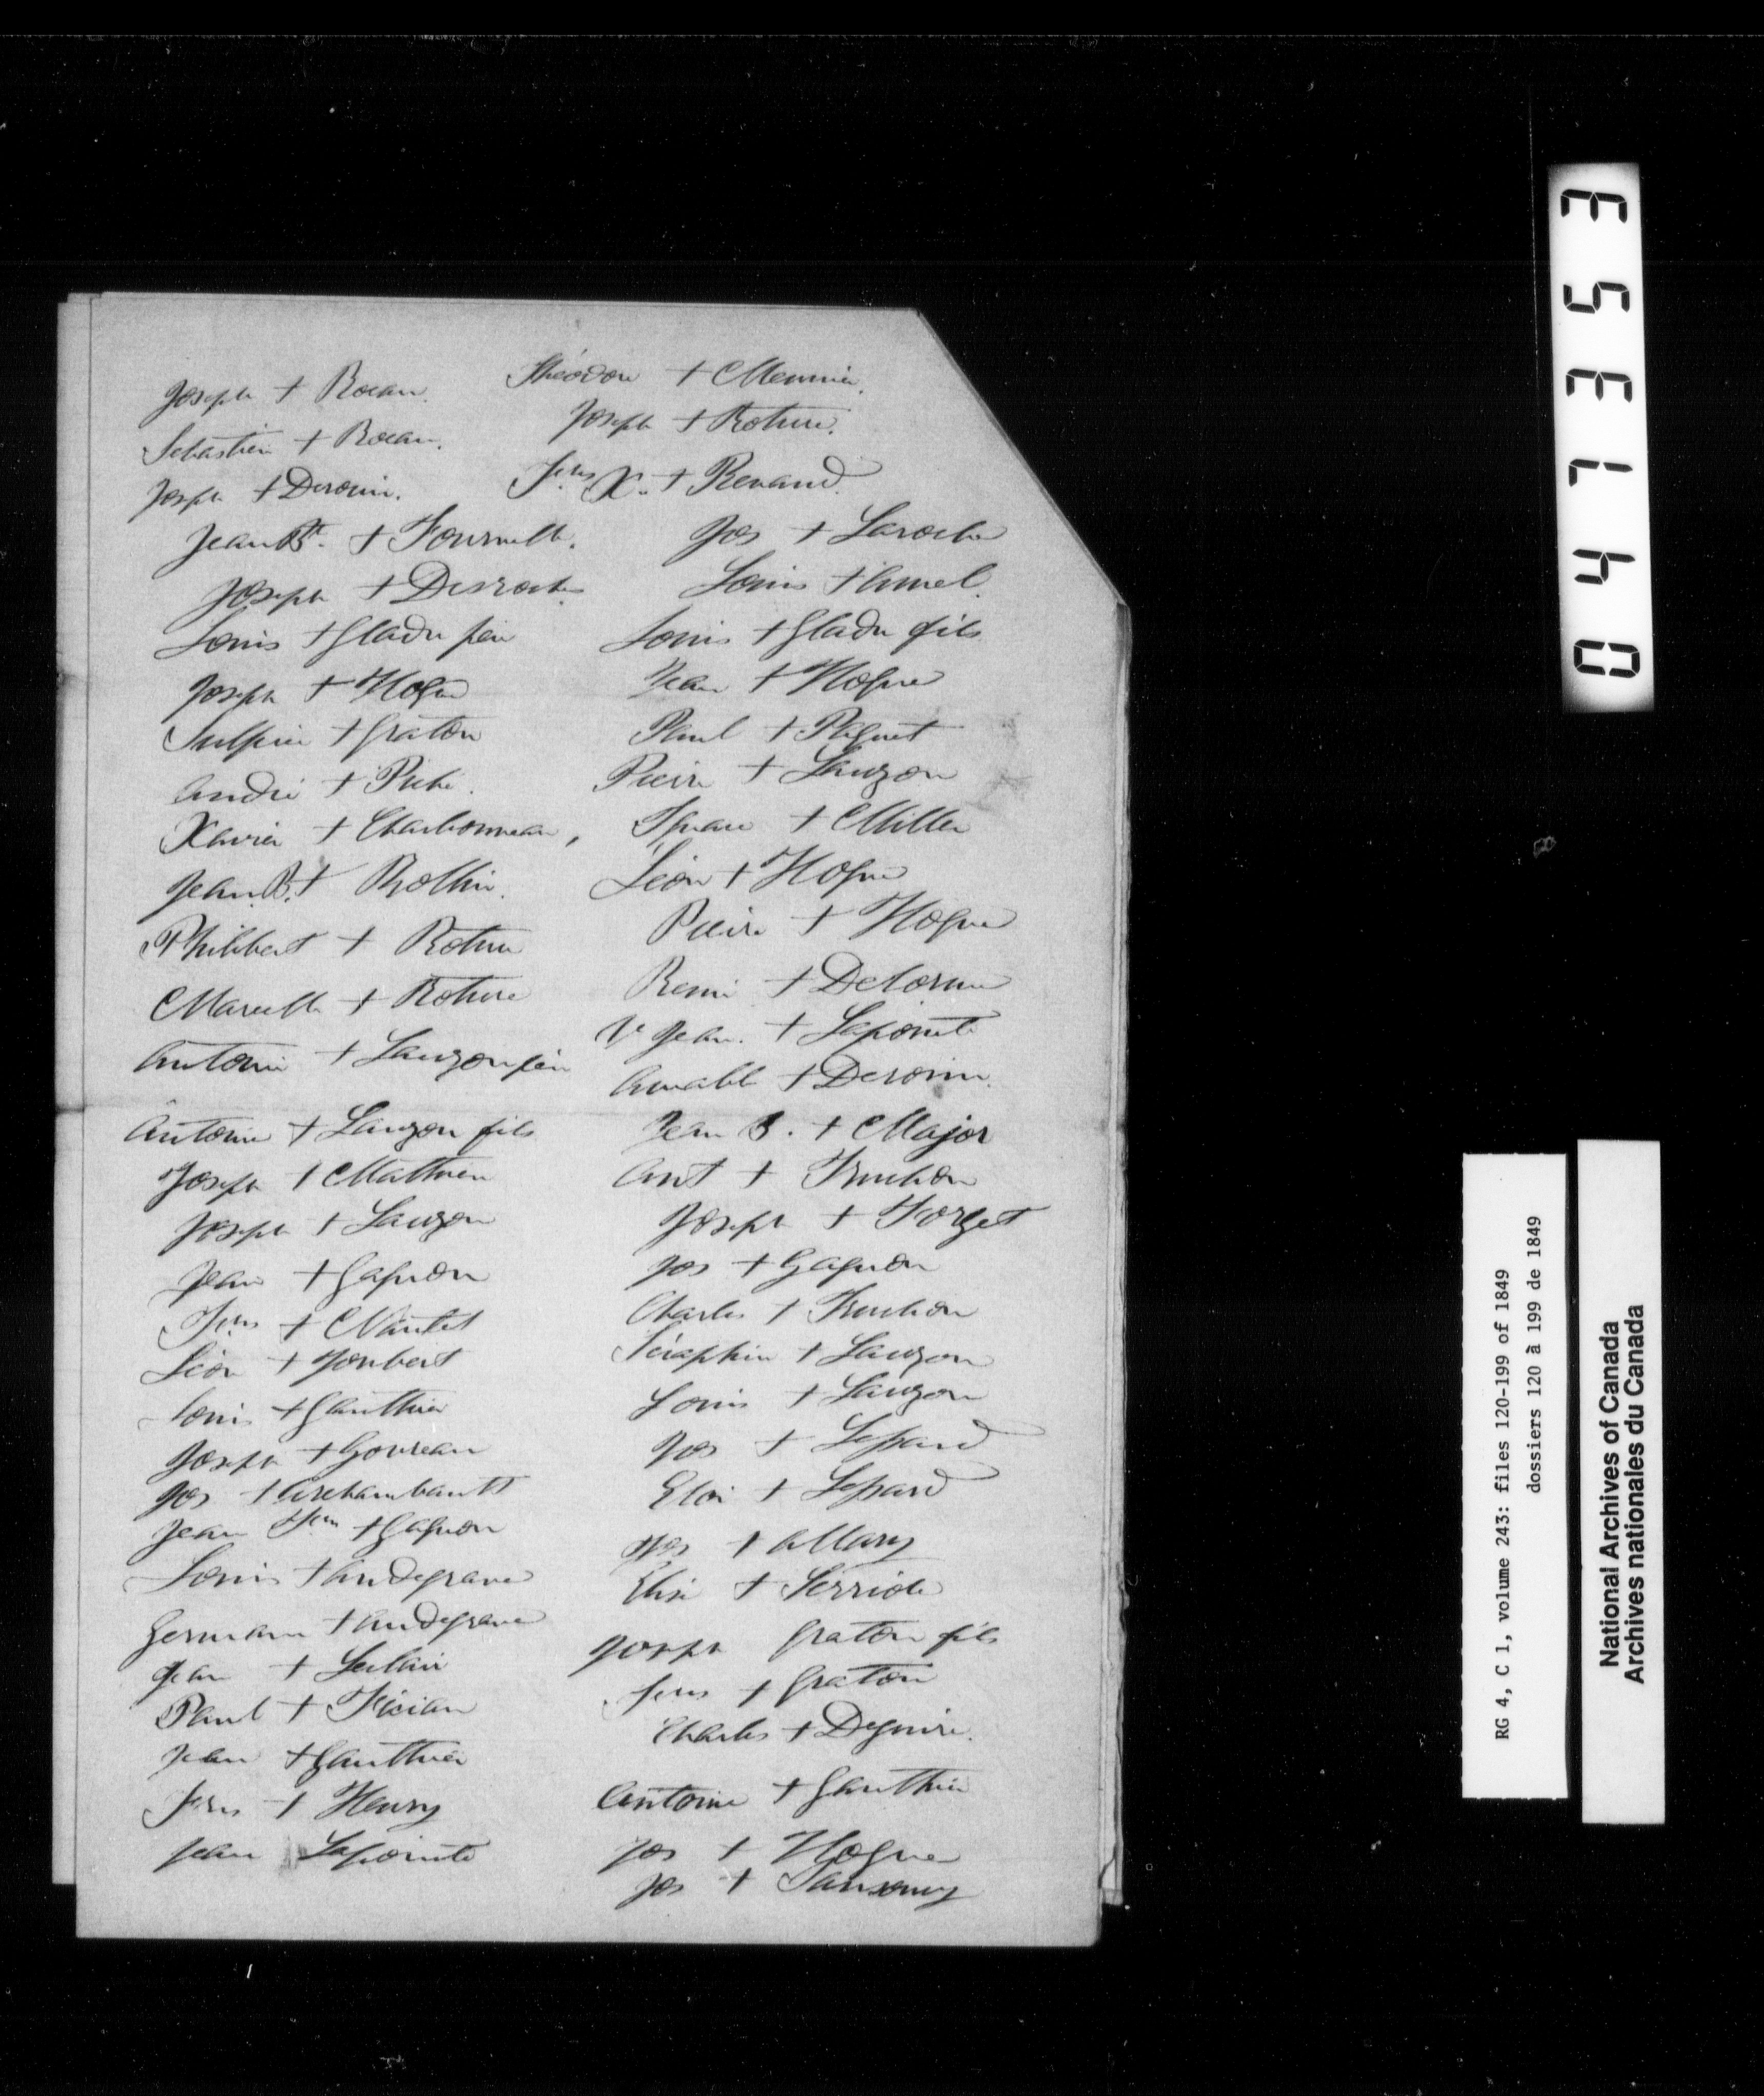 Joseph + Rocan. Théodore + Meunier.
Sébastien + Rocan. Joseph + Roture.
Joseph + Derouin. Frs X. + Renaud.
Jean Bt. + Fournelle. Jos + Laroche
Joseph + Desroches. Louis + Amel.
Louis + Gladu père Louis + Gladu fils
Joseph + Hogue Jean + Hogue
Sulpice + Graton Paul + Paquet
André + Pierre + Lauzon
Xavier + Charbonneau, Ignace + Miller
Jean. B. + Rollin. Léon + Hogue
Philibert + Roture Pierre + Hogue
Marcelle + Roture Remi + Delorme
Antoine + Lauzon père Ve Jean. + Lapointe
Amable + Derouin.
Antoine + Lauzon fils Jean B. + Major
Joseph + Mathieu Ant + Truchon
Joseph + Lauzon Joseph + Forget
Jean + Gagnon Jos + Gagnon
Frs + Nantel Charles + Truchon
Léon + Joubert Séraphin + Lauzon
Louis + Gauthier Louis + Lauzon
Joseph + Goureau Jos + Lessard
Jos + Archambault Eloi + Lessard
Jean Frs + Gagnon Jos + Mary
Louis + Andegrave Elisé +
Germain + Andegrave Joseph Graton fils
Jean + Leclair Frs + Graton
Paul + Charles + Deguire.
Jean + Gauthier
Frs + Henry Antoine + Gauthier
Jean Lapointe Jos + Hogue
Jos + Sansoucy
047353
RG 4, C 1, volume 243: files 120-199 of 1849
dossiers 120 à 199 de 1849
National Archives of Canada
Archives nationales du Canada